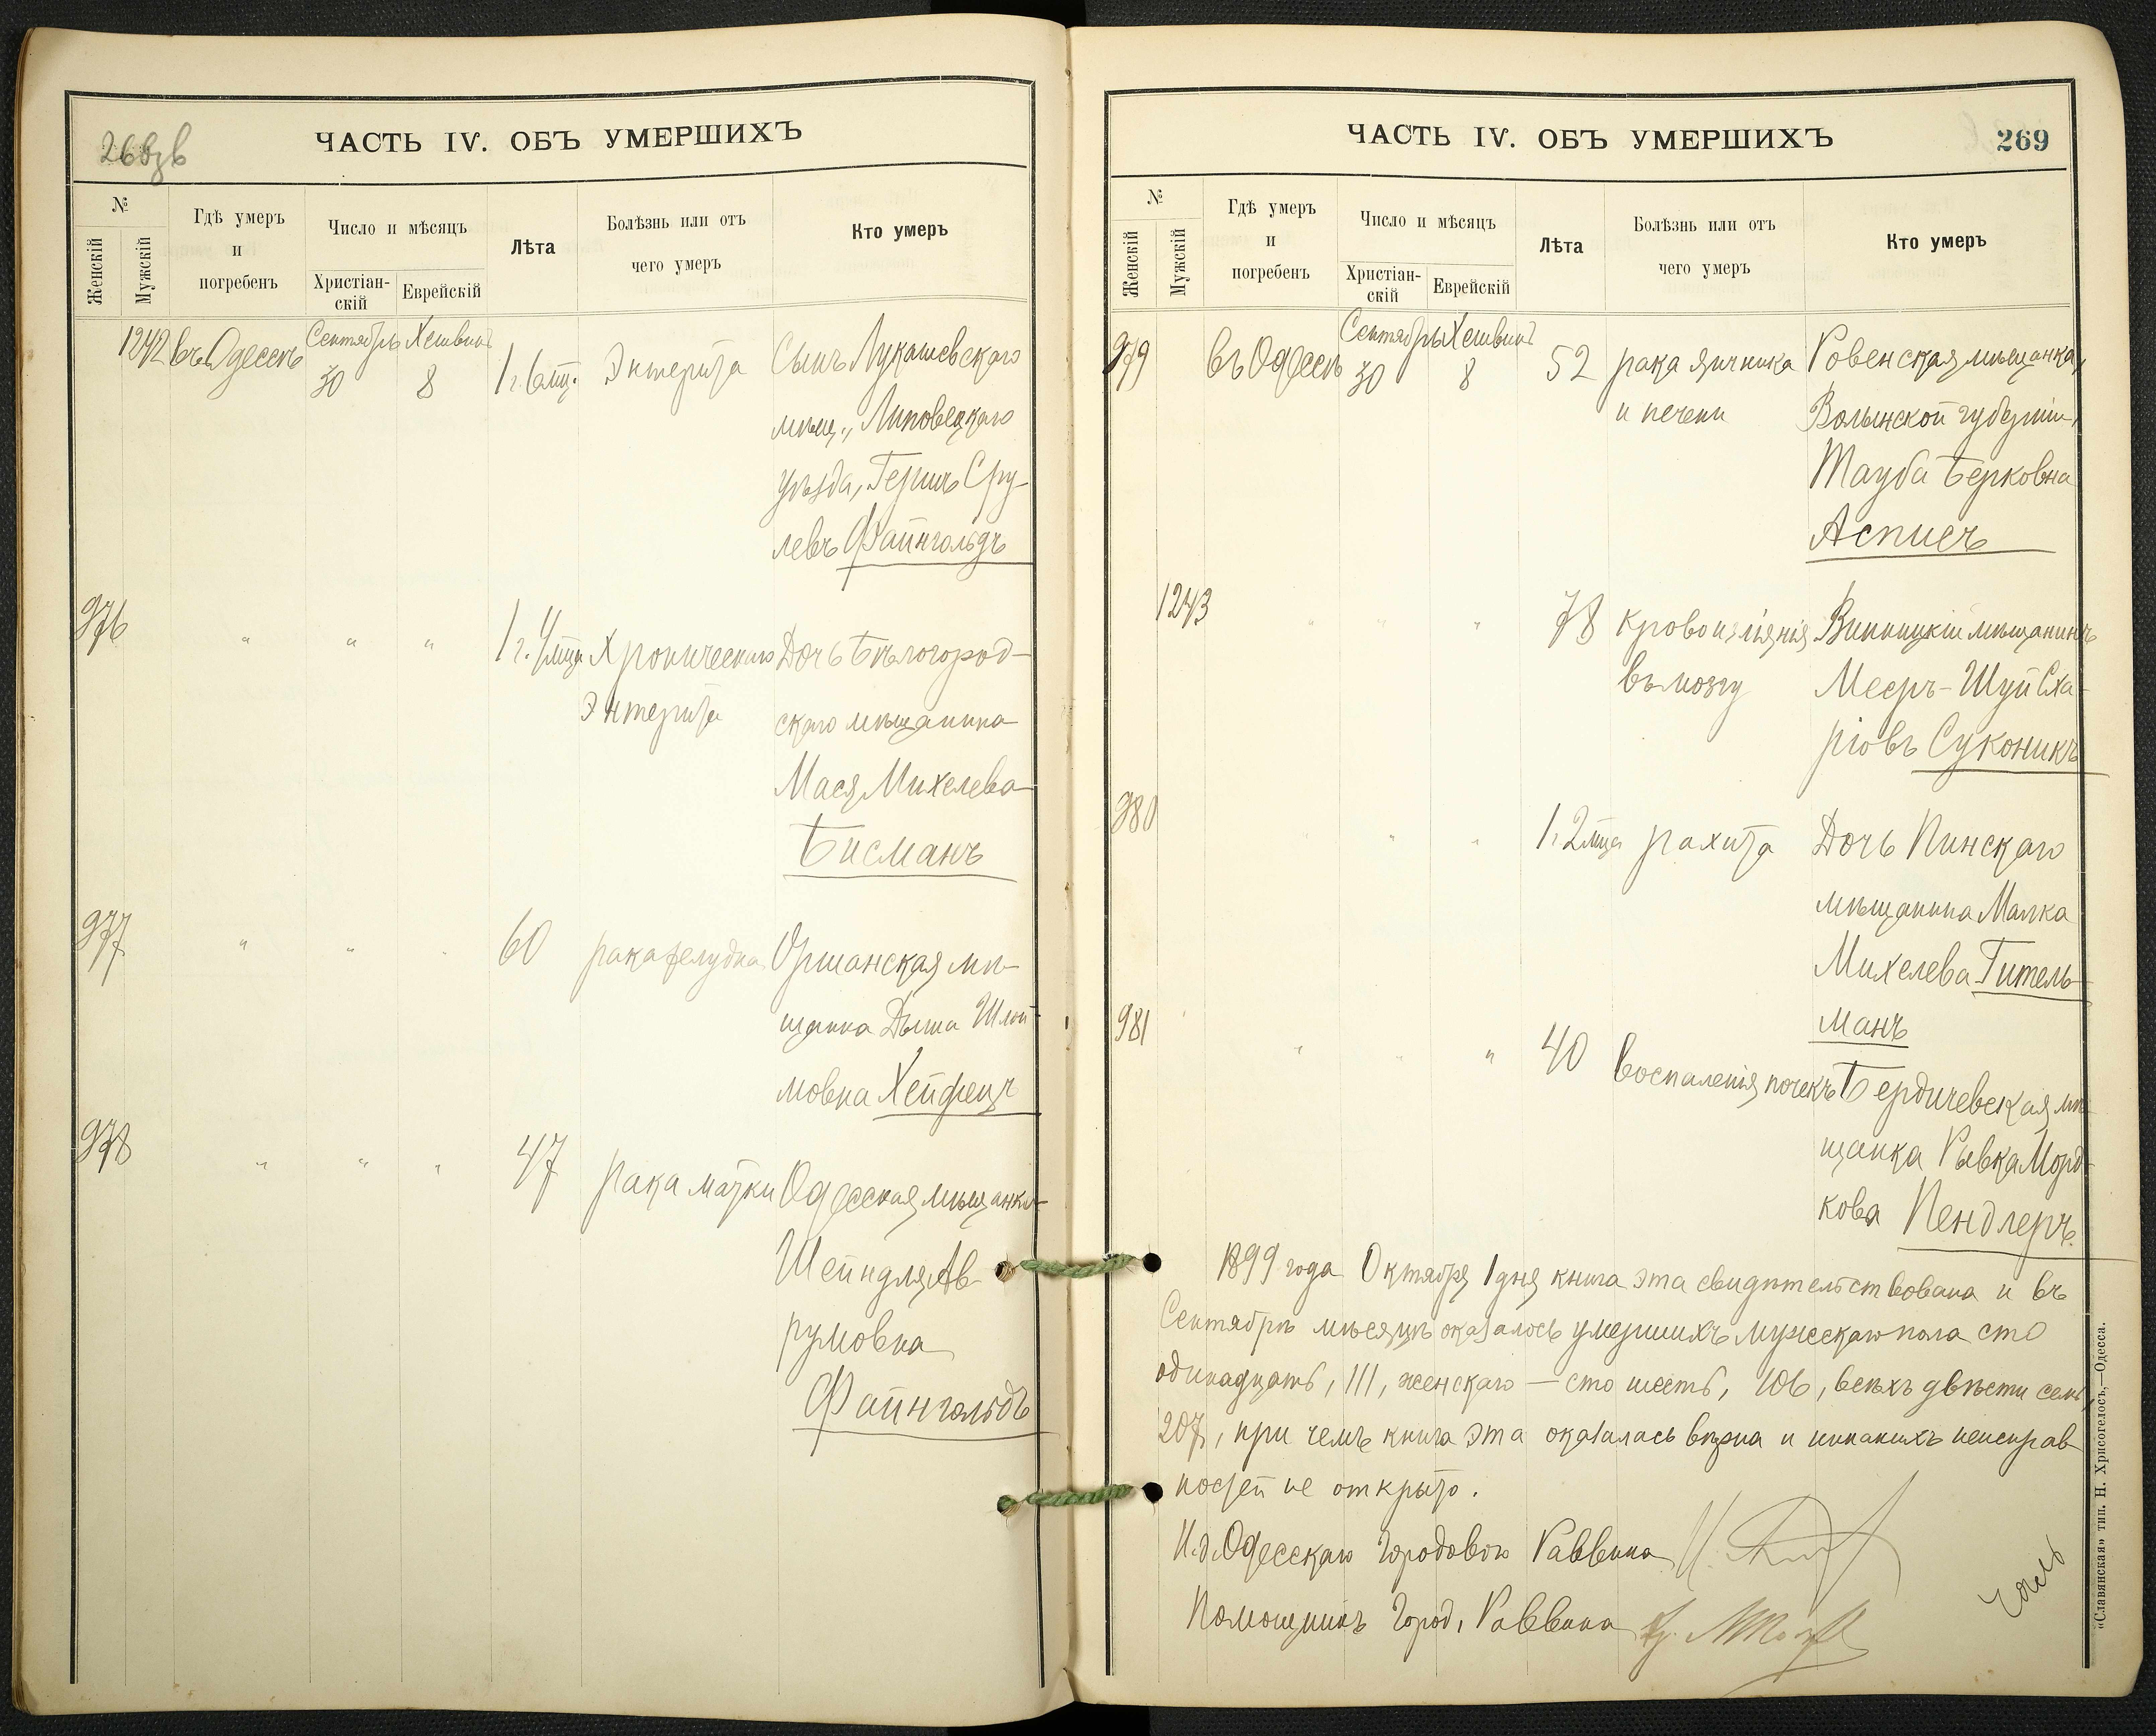 268об
ЧАСТЬ IV. ОБЪ УМЕРШИХЪ
№
Женскій
Мужскій
Гдѣ умеръ
и
погребенъ
Число и мѣсяцъ
Христіан-
скій
Еврейскій
Лѣта
Болѣзнь или отъ
чего умеръ
Кто умеръ
1242 въ Одессѣ Сентябрь 30 Хешвинъ 8 1 г. 6 мц. Энтерита Сынъ Лукашевскаго
мѣщ., Липовецкаго
уѣзда, Гершъ Сру-
левъ Файнгольдъ
976 " " " 1 г. 4 мца Хроническаго Дочь Бѣлогород-
Энтерита скаго мѣщанина
Мася Михелева
Бисманъ
977 " " " 60 рака желудка Оршанская мѣ-
щанка Дыша Шлои-
мовна Хейфецъ
978 " " " 47 рака матки Одесская мѣщанка
Шейндля Ав-
румовна
Файнгольдъ
ЧАСТЬ IV. ОБЪ УМЕРШИХЪ
269
№
Женскій
Мужскій
Гдѣ умеръ
и
погребенъ
Число и мѣсяцъ
Христіан-
скій
Еврейскій
Лѣта
Болѣзнь или отъ
чего умеръ
Кто умеръ
979 въ Одессѣ Сентябрь 30 Хешвинъ 8 52 рака яичника Ровенская мѣщанка,
и печени Волынской губерніи,
Тауба Берковна
Асписъ
1243 " " " 78 кровоизліянія Винницкій мѣщанинъ
въ мозгу Мееръ-Шуй Сха-
ріовъ Суконикъ
980 " " " 1 г. 2 мца рахита Дочь Пинскаго
мѣщанина Малка
Михелева Гитель-
манъ
981 " " " 40 Воспаленія почекъ Бердичевская мѣ-
щанка Рывка Морд-
кова Пендлеръ.
1899 года Октября 1 дня книга эта свидѣтельствована и въ
Сентябрѣ мѣсяцѣ оказалось умершихъ мужескаго пола сто
одинадцать, 111, женскаго — сто шесть, 106, всѣхъ двѣсти семь,
207, при чемъ книга эта оказалась вѣрна и никакихъ неисправ-
ностей не открыто.
И. д. Одесскаго Городового Раввина
Помощникъ Город. Раввина
«Славянская» тип. Н. Хрисогелосъ,—Одесса.